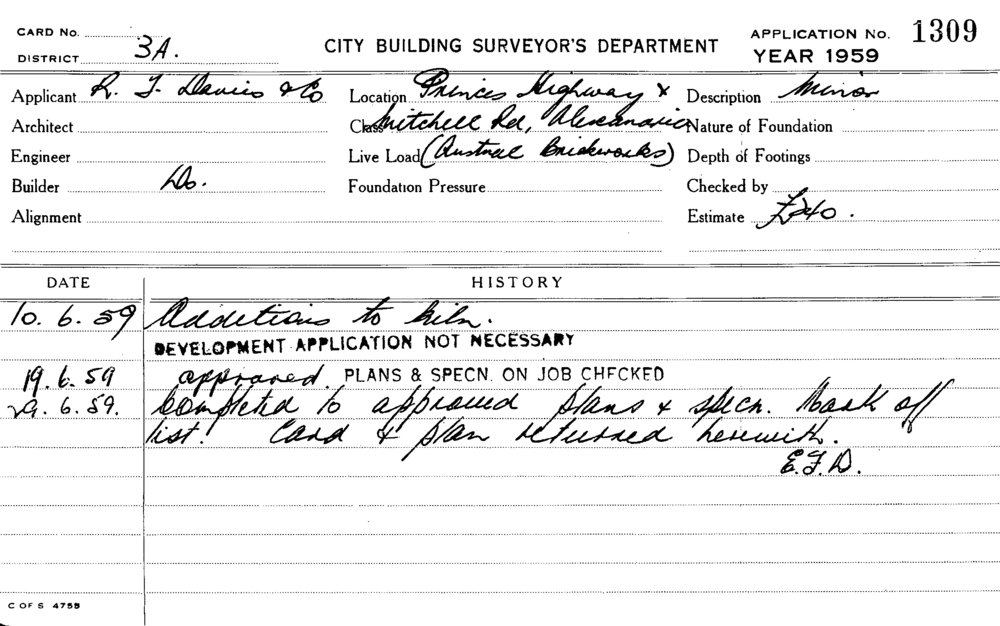 CARD No.
DISTRICT 3A.
CITY BUILDING SURVEYOR'S DEPARTMENT
APPLICATION No. 1309
YEAR 1959
Applicant R. J. Davies & Co Location Princes Highway & Description Minor
Architect Class Mitchell Rd, Alexandria Nature of Foundation
Engineer Live Load (Austral Brickworks) Depth of Footings
Builder Do. Foundation Pressure Checked by
Alignment Estimate £240.
DATE HISTORY
10. 6. 59 Additions to kiln.
DEVELOPMENT APPLICATION NOT NECESSARY
19. 6. 59 approved. PLANS & SPECN. ON JOB CHECKED
29. 6. 59. Completed to approved plans & specn. Mark off
list. Card & plan returned herewith.
E.F.D.
C OF S 4755